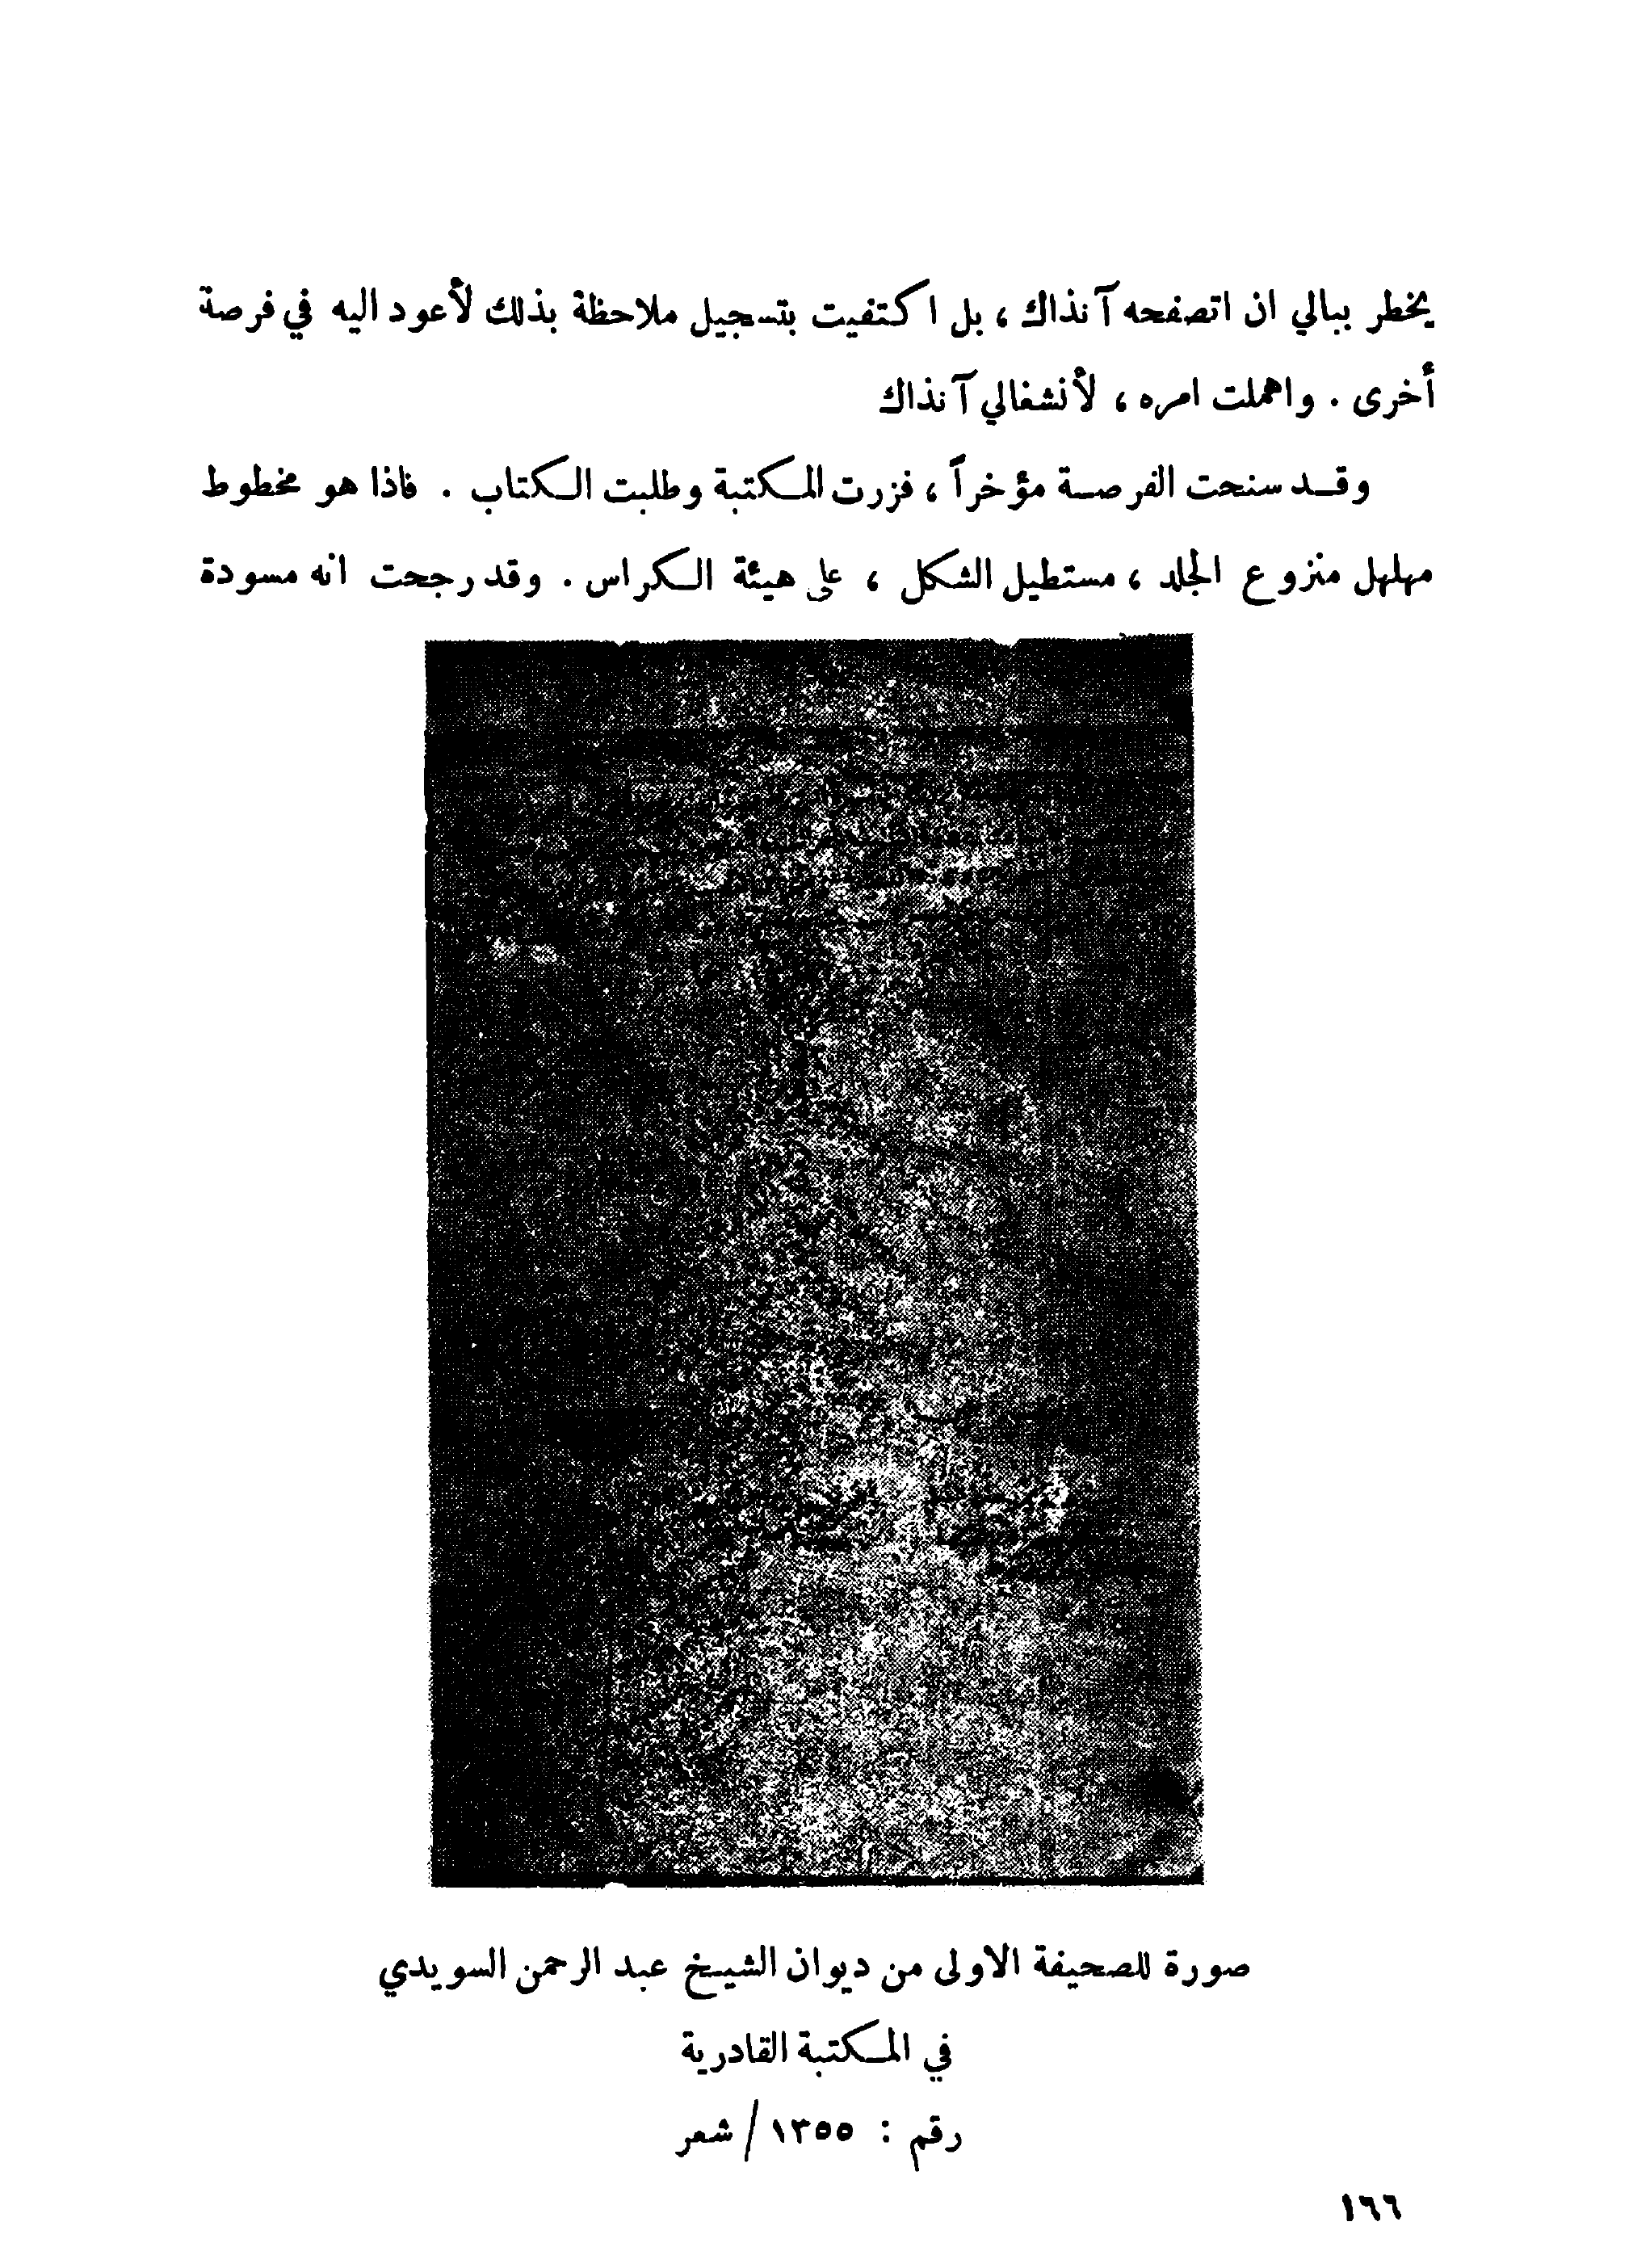 يخطر ببالي ان اتصفحه آنذاك ، بل اكتفيت بتسجيل ملاحظة بذلك لأعود اليه في فرصة
أخرى . واهملت امره ، لأنشغالي آنذاك
وقد سنحت الفرصة مؤخراً ، فزرت المكتبة وطلبت الكتاب . فاذا هو مخطوط
مهلهل منزوع الجلد ، مستطيل الشكل ، على هيئة الكراس . وقد رجحت انه مسودة
صورة للصحيفة الاولى من ديوان الشيخ عبد الرحمن السويدي
في المكتبة القادرية
رقم : ١٣٥٥/شعر
١٦٦